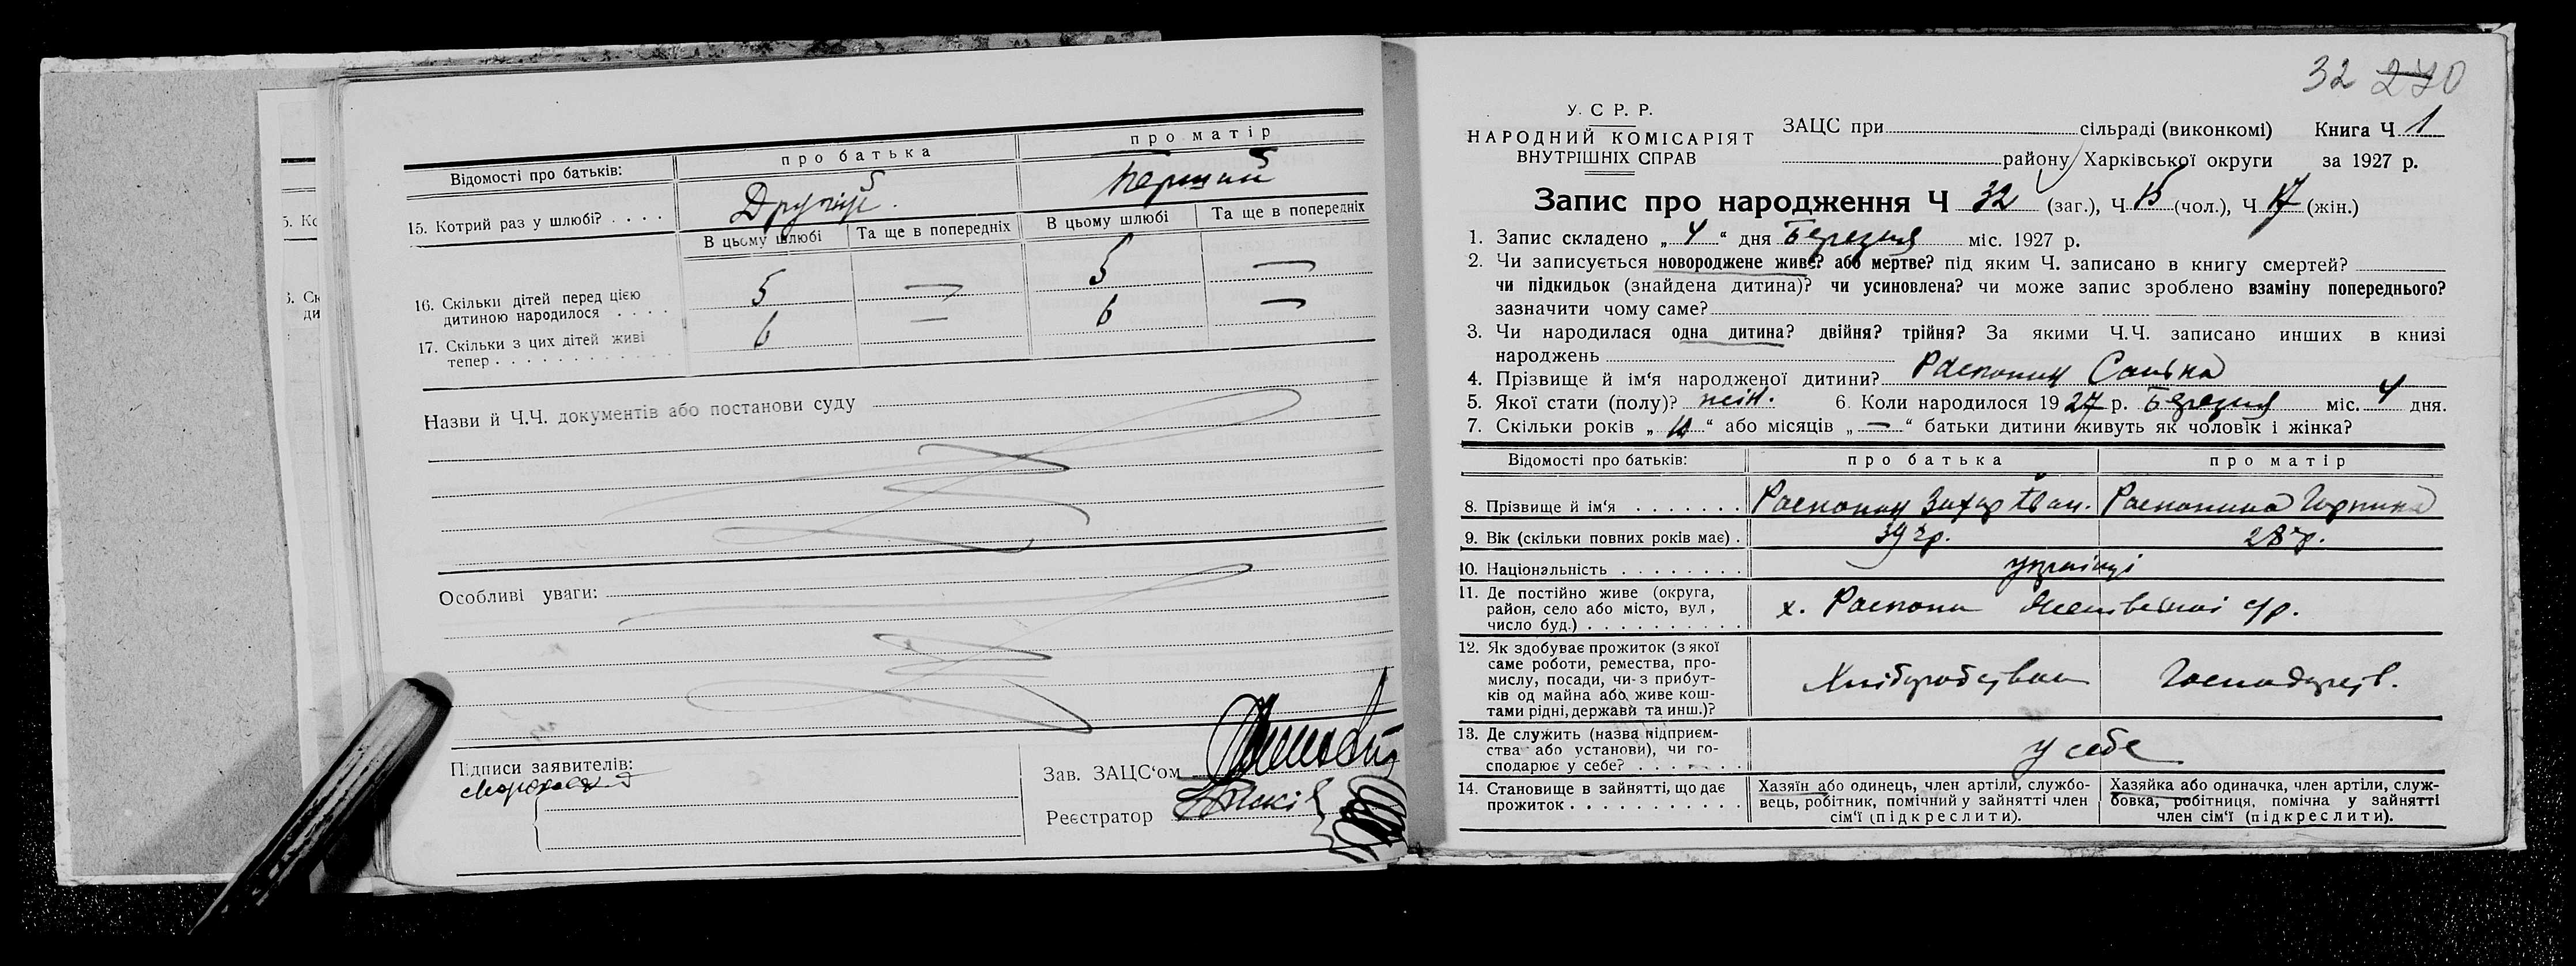 про батька
про матір
Відомості про батьків:
15. Котрий раз у шлюбі? . . . .
Другий.
Перший
В цьому шлюбі
Та ще в попередніх
В цьому шлюбі
Та ще в попередніх
16. Скільки дітей перед цією дитиною народилося . . . .
5 — 5 —
17. Скільки з цих дітей живі тепер . . . . . . . . . . . .
6 — 6 —
Назви й Ч.Ч. документів або постанови суду
Особливі уваги:
Підписи заявителів:
Зав. ЗАЦС‘ом
Реєстратор
32 270
У. С Р. Р.
НАРОДНИЙ КОМІСАРІЯТ
ВНУТРІШНІХ СПРАВ
ЗАЦС при сільраді (виконкомі)
району Харківської округи
Книга Ч 1
за 1927 р.
Запис про народження Ч 32 (заг.), Ч 15 (чол.), Ч 17 (жін.)
1. Запис складено „ 4 “ дня Березня міс. 1927 р.
2. Чи записується новороджене живе? або мертве? під яким Ч. записано в книгу смертей?
чи підкидьок (знайдена дитина)? чи усиновлена? чи може запис зроблено взаміну попереднього?
зазначити чому саме?
3. Чи народилася одна дитина? двійня? трійня? За якими Ч.Ч. записано инших в книзі
народжень
4. Прізвище й ім‘я народженої дитини?
5. Якої стати (полу)? жін. 6. Коли народилося 1927 р. Березня міс. 4 дня.
7. Скільки років „ “ або місяців „ — “ батьки дитини живуть як чоловік і жінка?
Відомості про батьків:
про батька
про матір
8. Прізвище й ім‘я . . . . . . .
Распопин Захар Іван.
Распопина Горпина
9. Вік (скільки повних років має) .
39 р.
28 р.
10. Національність . . . . . . . .
українці
11. Де постійно живе (округа,
район, село або місто, вул,
число буд.) . . . . . . . . . .
х. с/р.
12. Як здобуває прожиток (з якої
саме роботи, ремества, про-
мислу, посади, чи з прибут-
ків од майна або живе кош-
тами рідні, держави та инш.)?
Хліборобством
Господарств.
13. Де служить (назва підприєм-
ства або установи), чи го-
сподарює у себе? . . . . . . .
у себе
14. Становище в зайнятті, що дає
прожиток . . . . . . . . . . .
Хазяїн або одинець, член артіли, службо-
вець, робітник, помічний у зайнятті член
сім‘ї (підкреслити).
Хазяйка або одиначка, член артіли, служ-
бовка, робітниця, помічна у зайнятті
член сім‘ї (підкреслити).